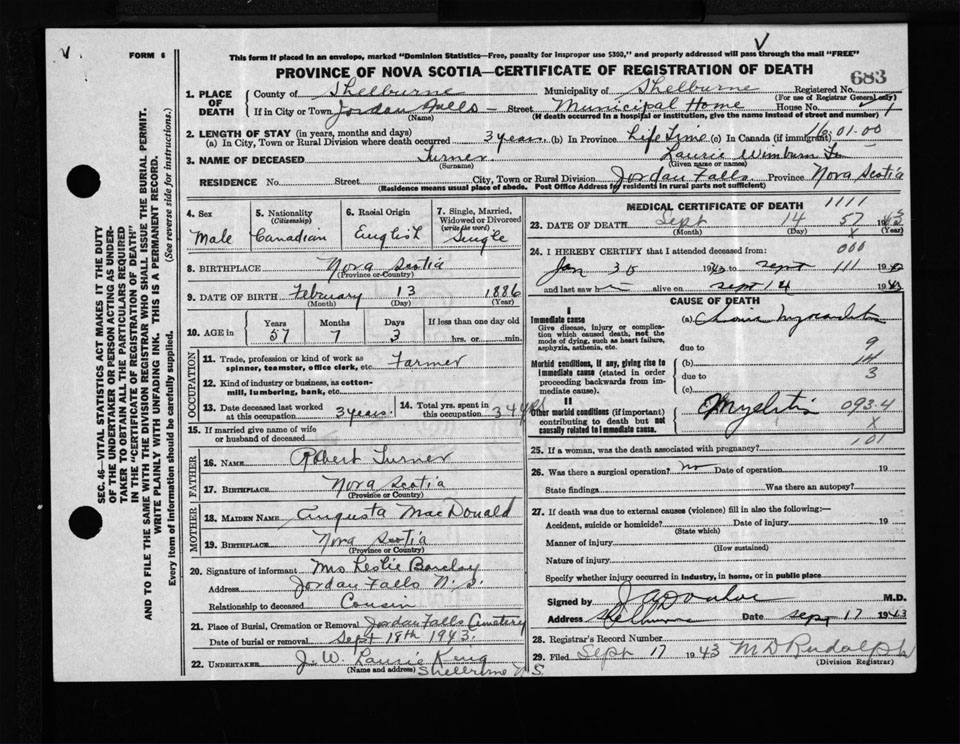 V
FORM 6
This form if placed in an envelope, marked "Dominion Statistics—Free, penalty for improper use $300," and properly addressed will pass through the mail "FREE"
V
PROVINCE OF NOVA SCOTIA—CERTIFICATE OF REGISTRATION OF DEATH
683
1. PLACE OF DEATH
County of Shelburne Municipality of Shelburne Registered No.
(For use of Registrar General only)
If in City or Town Jordan Falls — Street Municipal Home House No.
(Name) (If death occurred in a hospital or institution, give the name instead of street and number)
2. LENGTH OF STAY (in years, months and days)
(a) In City, Town or Rural Division where death occurred 3 years (b) In Province Life Time (c) In Canada (if immigrant)
01-00
3. NAME OF DECEASED Turner Laurie
(Surname) (Given name or names)
RESIDENCE No. Street City, Town or Rural Division Jordan Falls Province Nova Scotia
(Residence means usual place of abode. Post Office Address for residents in rural parts not sufficient)
4. Sex
Male
5. Nationality
(Citizenship)
Canadian
6. Racial Origin
English
7. Single, Married, Widowed or Divorced
(write the word)
Single
8. BIRTHPLACE Nova Scotia
(Province or Country)
9. DATE OF BIRTH February 13 1886
(Month) (Day) (Year)
10. AGE in
Years Months Days If less than one day old
57 7 3 hrs. or min.
OCCUPATION
11. Trade, profession or kind of work as spinner, teamster, office clerk, etc. Farmer
12. Kind of industry or business, as cotton-mill, lumbering, bank, etc.
13. Date deceased last worked at this occupation 3 years.
14. Total yrs. spent in this occupation 34 yrs
15. If married give name of wife or husband of deceased
FATHER
16. NAME Robert Turner
17. BIRTHPLACE Nova Scotia
(Province or Country)
MOTHER
18. MAIDEN NAME Augusta MacDonald
19. BIRTHPLACE Nova Scotia
(Province or Country)
20. Signature of informant Mrs Leslie Barclay
Address Jordan Falls N. S.
Relationship to deceased Cousin
21. Place of Burial, Cremation or Removal Jordan Falls Cemetery
Date of burial or removal Sept 18th 1943.
22. UNDERTAKER J. W. Laurie King
(Name and address) Shelburne N S.
MEDICAL CERTIFICATE OF DEATH
1111
23. DATE OF DEATH Sept 14 57 1943
(Month) (Day) X (Year)
24. I HEREBY CERTIFY that I attended deceased from:
000
Jan 30 1943 to Sept 111 1943
and last saw h alive on Sept 14 1943
CAUSE OF DEATH
I
Immediate cause
Give disease, injury or complication which caused death, not the mode of dying, such as heart failure, asphyxia, asthenia, etc.
(a)
due to 9
Morbid conditions, if any, giving rise to immediate cause (stated in order proceeding backwards from immediate cause).
(b) 14
due to 3
(c)
II
Other morbid conditions (if important) contributing to death but not causally related to immediate cause.
093-4
X
101
25. If a woman, was the death associated with pregnancy?
26. Was there a surgical operation? No Date of operation 19
State findings Was there an autopsy?
27. If death was due to external causes (violence) fill in also the following:—
Accident, suicide or homicide? Date of injury 19
(State which)
Manner of injury
(How sustained)
Nature of injury
Specify whether injury occurred in industry, in home, or in public place
Signed by M.D.
Address Shelburne Date Sept 17 1943
28. Registrar's Record Number
29. Filed Sept 17 1943 M D Rudolph
(Division Registrar)
SEC. 46—VITAL STATISTICS ACT MAKES IT THE DUTY
OF THE UNDERTAKER OR PERSON ACTING AS UNDER-
TAKER TO OBTAIN ALL THE PARTICULARS REQUIRED
IN THE "CERTIFICATE OF REGISTRATION OF DEATH"
AND TO FILE THE SAME WITH THE DIVISION REGISTRAR WHO SHALL ISSUE THE BURIAL PERMIT.
WRITE PLAINLY WITH UNFADING INK. THIS IS A PERMANENT RECORD.
Every item of information should be carefully supplied. (See reverse side for instructions.)